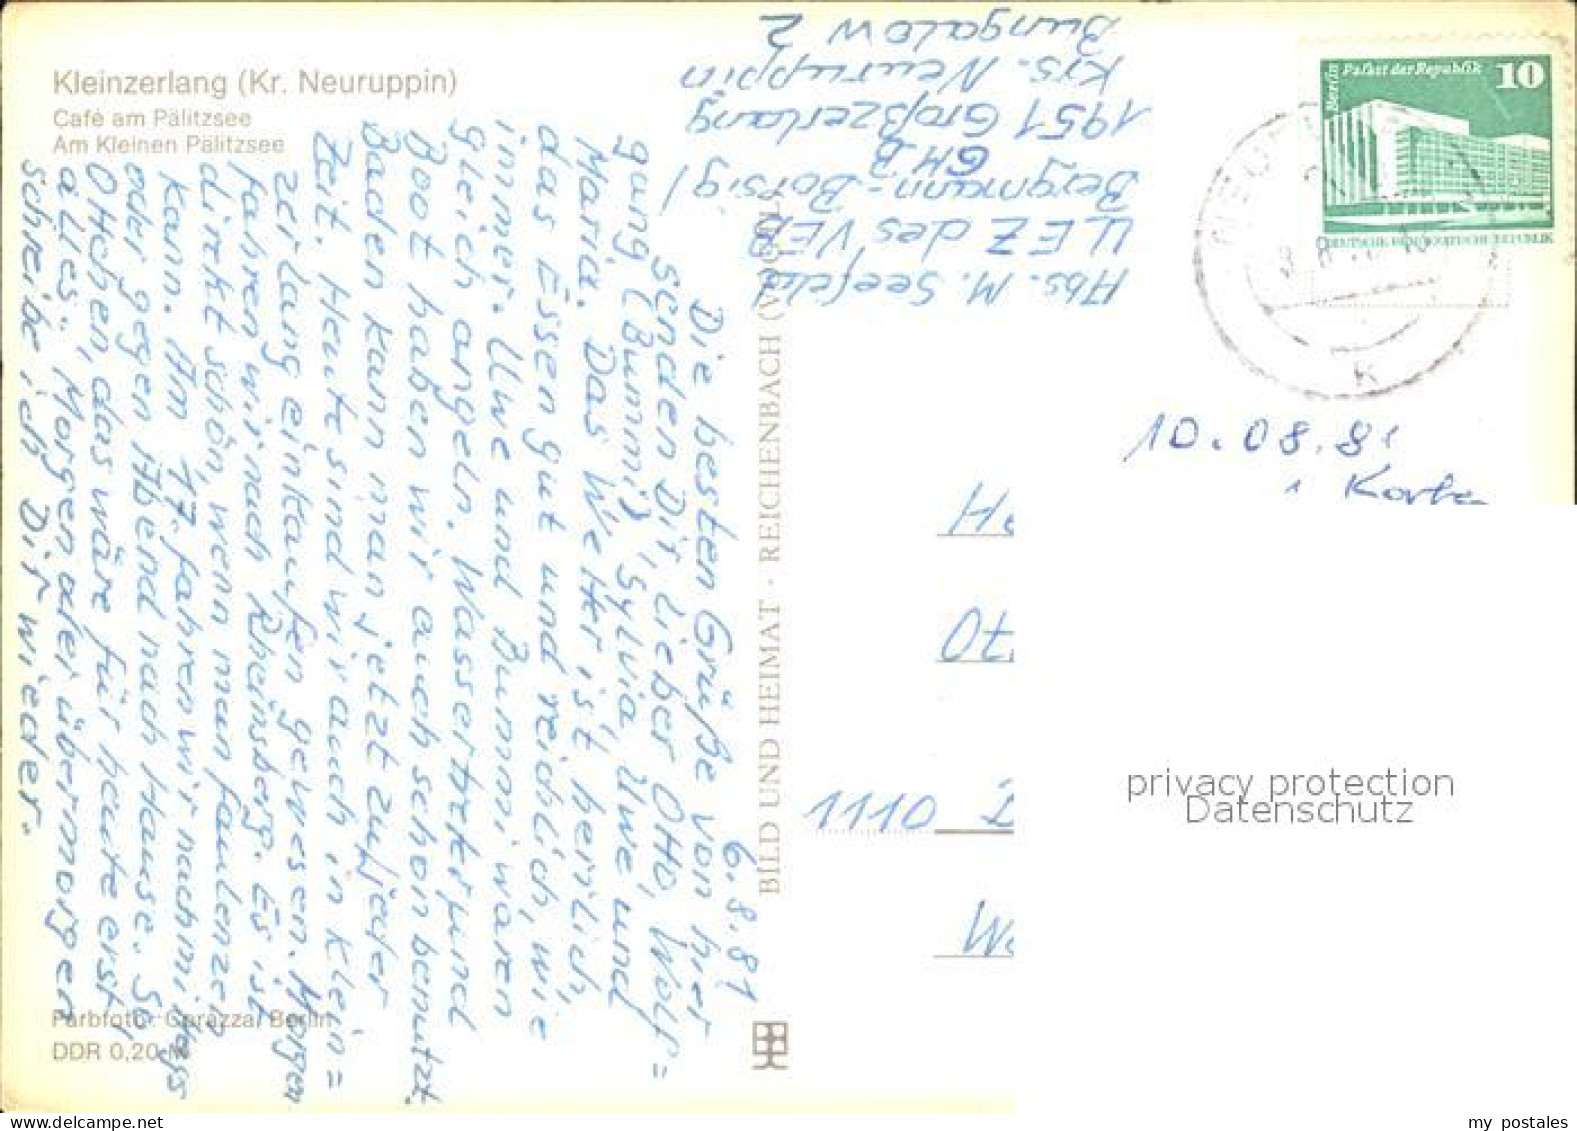 Kleinzerlang (Kr. Neuruppin)
Café am Pälitzsee
Am Kleinen Pälitzsee
6.8.81
Die besten Grüße von hier
senden Dir, lieber Otto, Wolf=
gang (Bummi), Sylvia, Uwe und
Maria. Das Wetter ist herrlich,
das Essen gut und reichlich, wie
immer. Uwe und Bummi waren
gleich angeln. Wassertreter und
Boot haben wir auch schon benutzt.
Baden kann man jetzt zu jeder
Zeit. Heute sind wir auch in Klein=
zerlang einkaufen gewesen. Morgen
fahren wir nach Rheinsberg. Es ist
direkt schön, wenn man faulenzen
kann. Am 17. fahren wir nachmittags
oder gegen Abend nach Hause. So
Ottchen, das wäre für heute erst
alles. Morgen oder übermorgen
schreibe ich Dir wieder.
Farbfoto: Garazza, Berlin
DDR 0,20 M
BILD UND HEIMAT · REICHENBACH
Abs. M. Seefeld
U. EZ des VEB
Bergmann-Borsig/
GHB
1951 Großzerlang
Krs. Neuruppin
Bungalow 2
Berlin Palast der Republik 10
DEUTSCHE DEMOKRATISCHE REPUBLIK
K
10.08.81
1 Karte
1110
privacy protection
Datenschutz
my postales